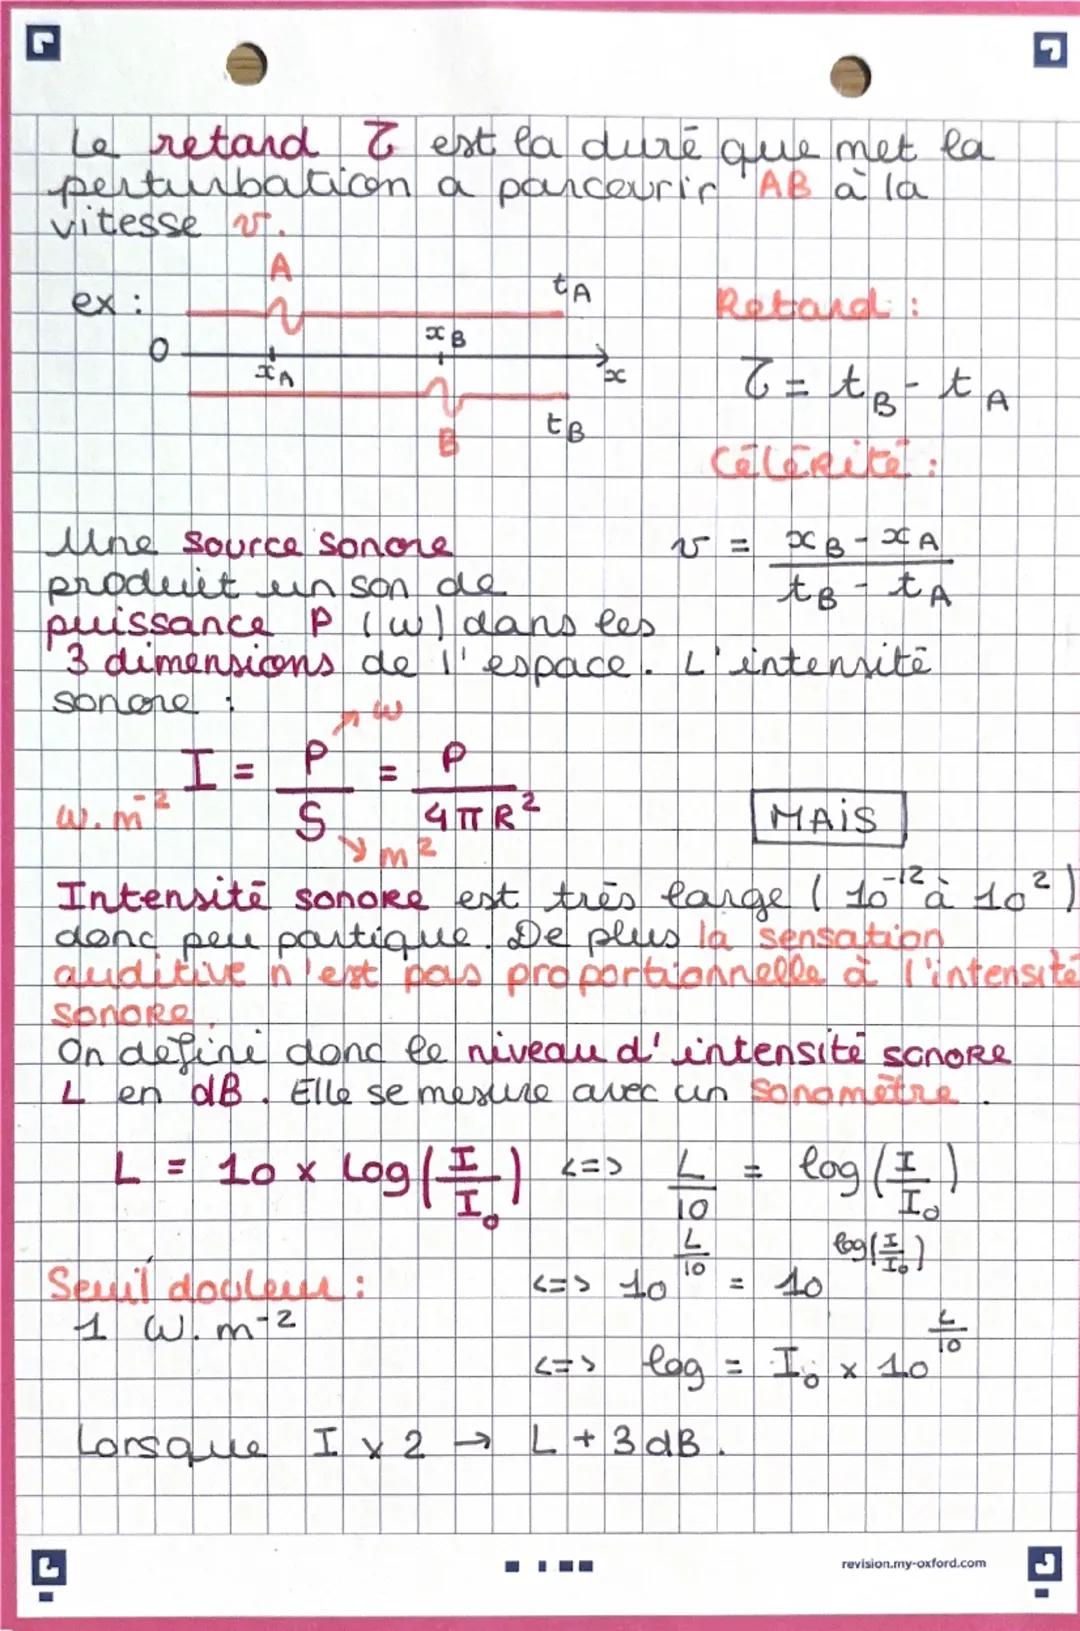 Le retard τ est la duré que met la
perturbation a parcourir AB à la
vitesse v.
ex :
A
tA
O
xA
xB
x
B
tB
Retard :
τ = tB - tA
Célérité :
v = (xB - xA) / (tB - tA)
Une source sonore
produit un son de
puissance P (W) dans les
3 dimensions de l'espace. L'intensité
sonore :
I = P/S = P/(4πR²)
W
W.m⁻²
m²
MAIS
Intensité sonore est très large (10⁻¹² à 10²)
donc peu partique. De plus la sensation
auditive n'est pas proportionnelle à l'intensité
sonore.
On défini donc le niveau d'intensité sonore
L en dB. Elle se mesure avec un sonomètre.
L = 10 × log(I/I₀) <=> L/10 = log(I/I₀)
<=> 10^(L/10) = 10^(log(I/I₀))
Seuil douleur :
1 W.m⁻²
<=> log = I₀ × 10^(L/10)
Lorsque I × 2 → L + 3 dB.
revision.my-oxford.com